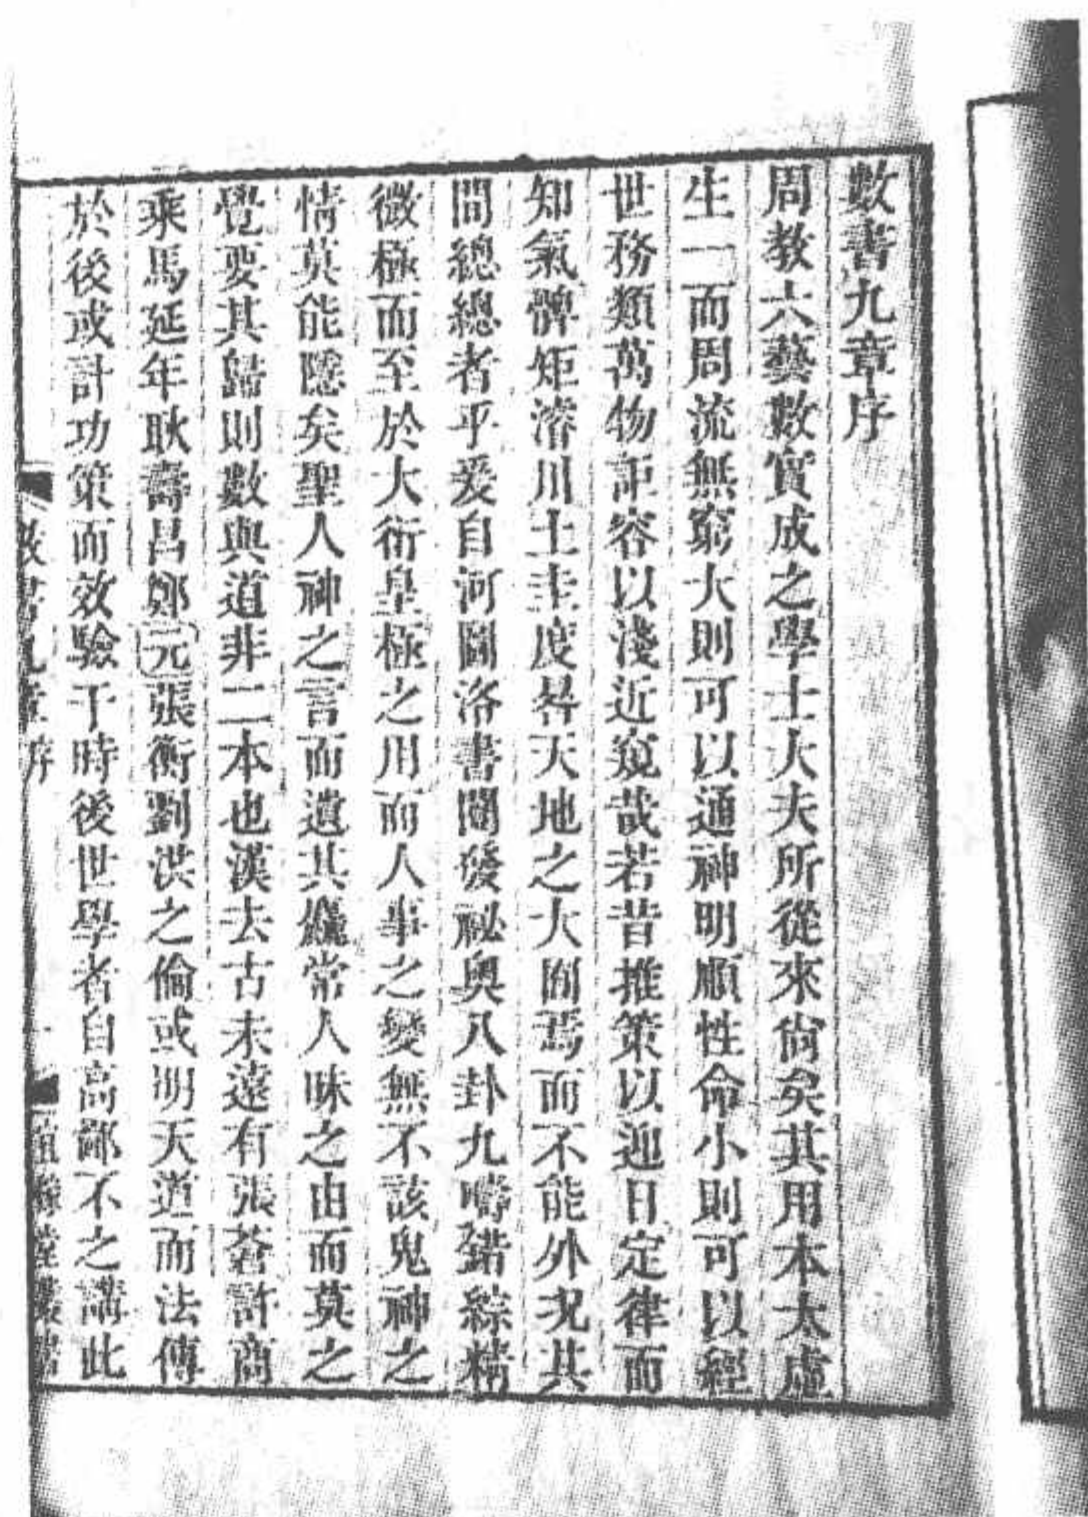 數書九章序
周教六藝數實成之學士大夫所從來尙矣其用本太虛
生一而周流無窮大則可以通神明順性命小則可以經
世務類萬物詎容以淺近窺哉若昔推策以迎日定律而
知氣髀矩濬川土圭度晷天地之大囿焉而不能外況其
間總總者乎爰自河圖洛書闓發祕奧八卦九疇錯綜精
微極而至於大衍皇極之用而人事之變無不該鬼神之
情莫能隱矣聖人神之言而遺其麤常人昧之由而莫之
覺要其歸則數與道非二本也漢去古未遠有張蒼許商
乘馬延年耿壽昌鄭元張衡劉洪之倫或明天道而法傳
於後或計功策而效驗于時後世學者自高鄙不之講此
數書九章序
宜稼堂叢書